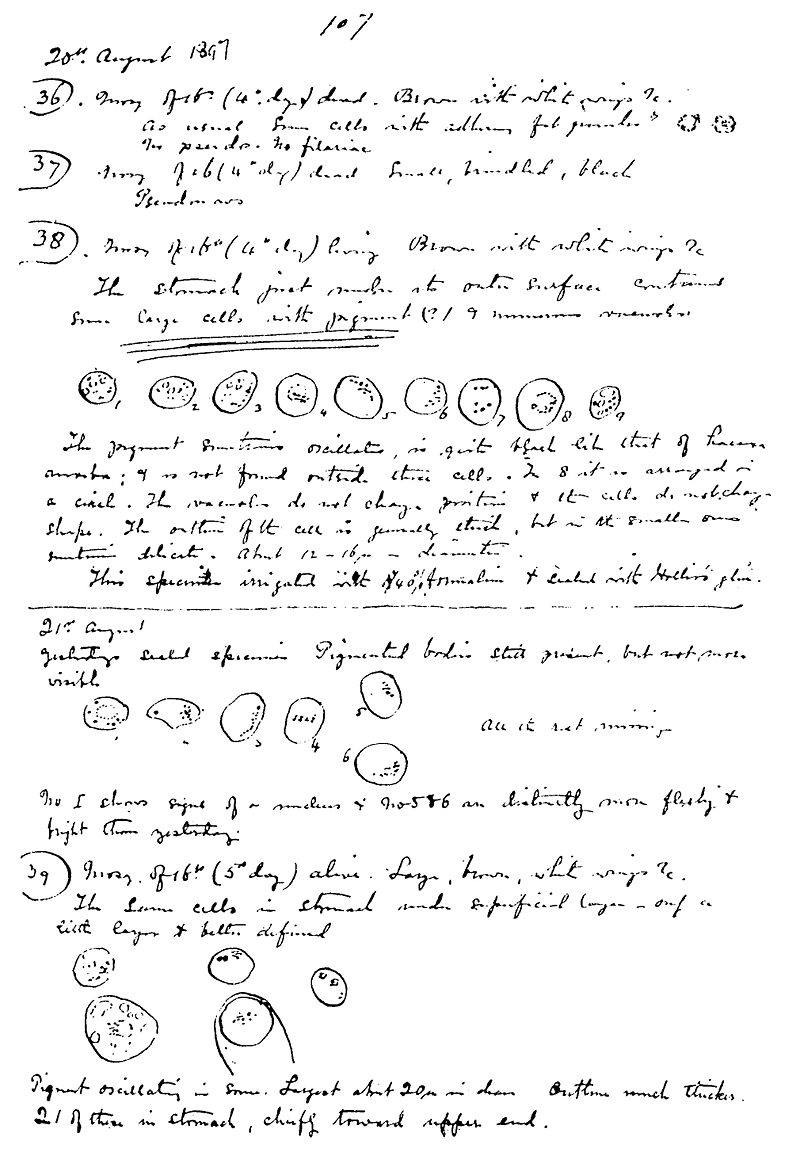 107
20th August 1897
36. Mosq. of 16th (4th day) dead. Brown with white wings &c.
As usual some cells with adhering fat granules
No pseudo. No filariae
37 Mosq of 16 (4th day) dead Small, brindled, black
Pseudo nos
38. Mosq of 16th (4th day) living Brown with white wings &c
The stomach just under its outer surface contains
some large cells with pigment (?) & numerous vacuoles
1 2 3 4 5 6 7 8 9
The pigment sometimes oscillates, is quite black like that of haem
amoeba; & is not found outside these cells. In 8 it is arranged in
a circle. The vacuoles do not change position & the cells do not change
shape. The outline of the cell is generally thick, but in the smaller ones
sometimes delicate. About 12 – 16μ in diameter.
This specimen irrigated with 40% formaline & sealed with Hollis's glue.
21st August
Yesterdays sealed specimen Pigmented bodies still present, but not more
visible
3 4 5 6
All the rest missing
No 1 shows signs of a nucleus & No 5 & 6 are distinctly more fleshy &
bright than yesterday.
39 Mosq. of 16th (5th day) alive. Large, brown, white wings &c.
The same cells in stomach under superficial layer – only a
little larger & better defined
Pigment oscillating in some. Largest about 20μ in diam Outline much thicker.
21 of these in stomach, chiefly toward upper end.